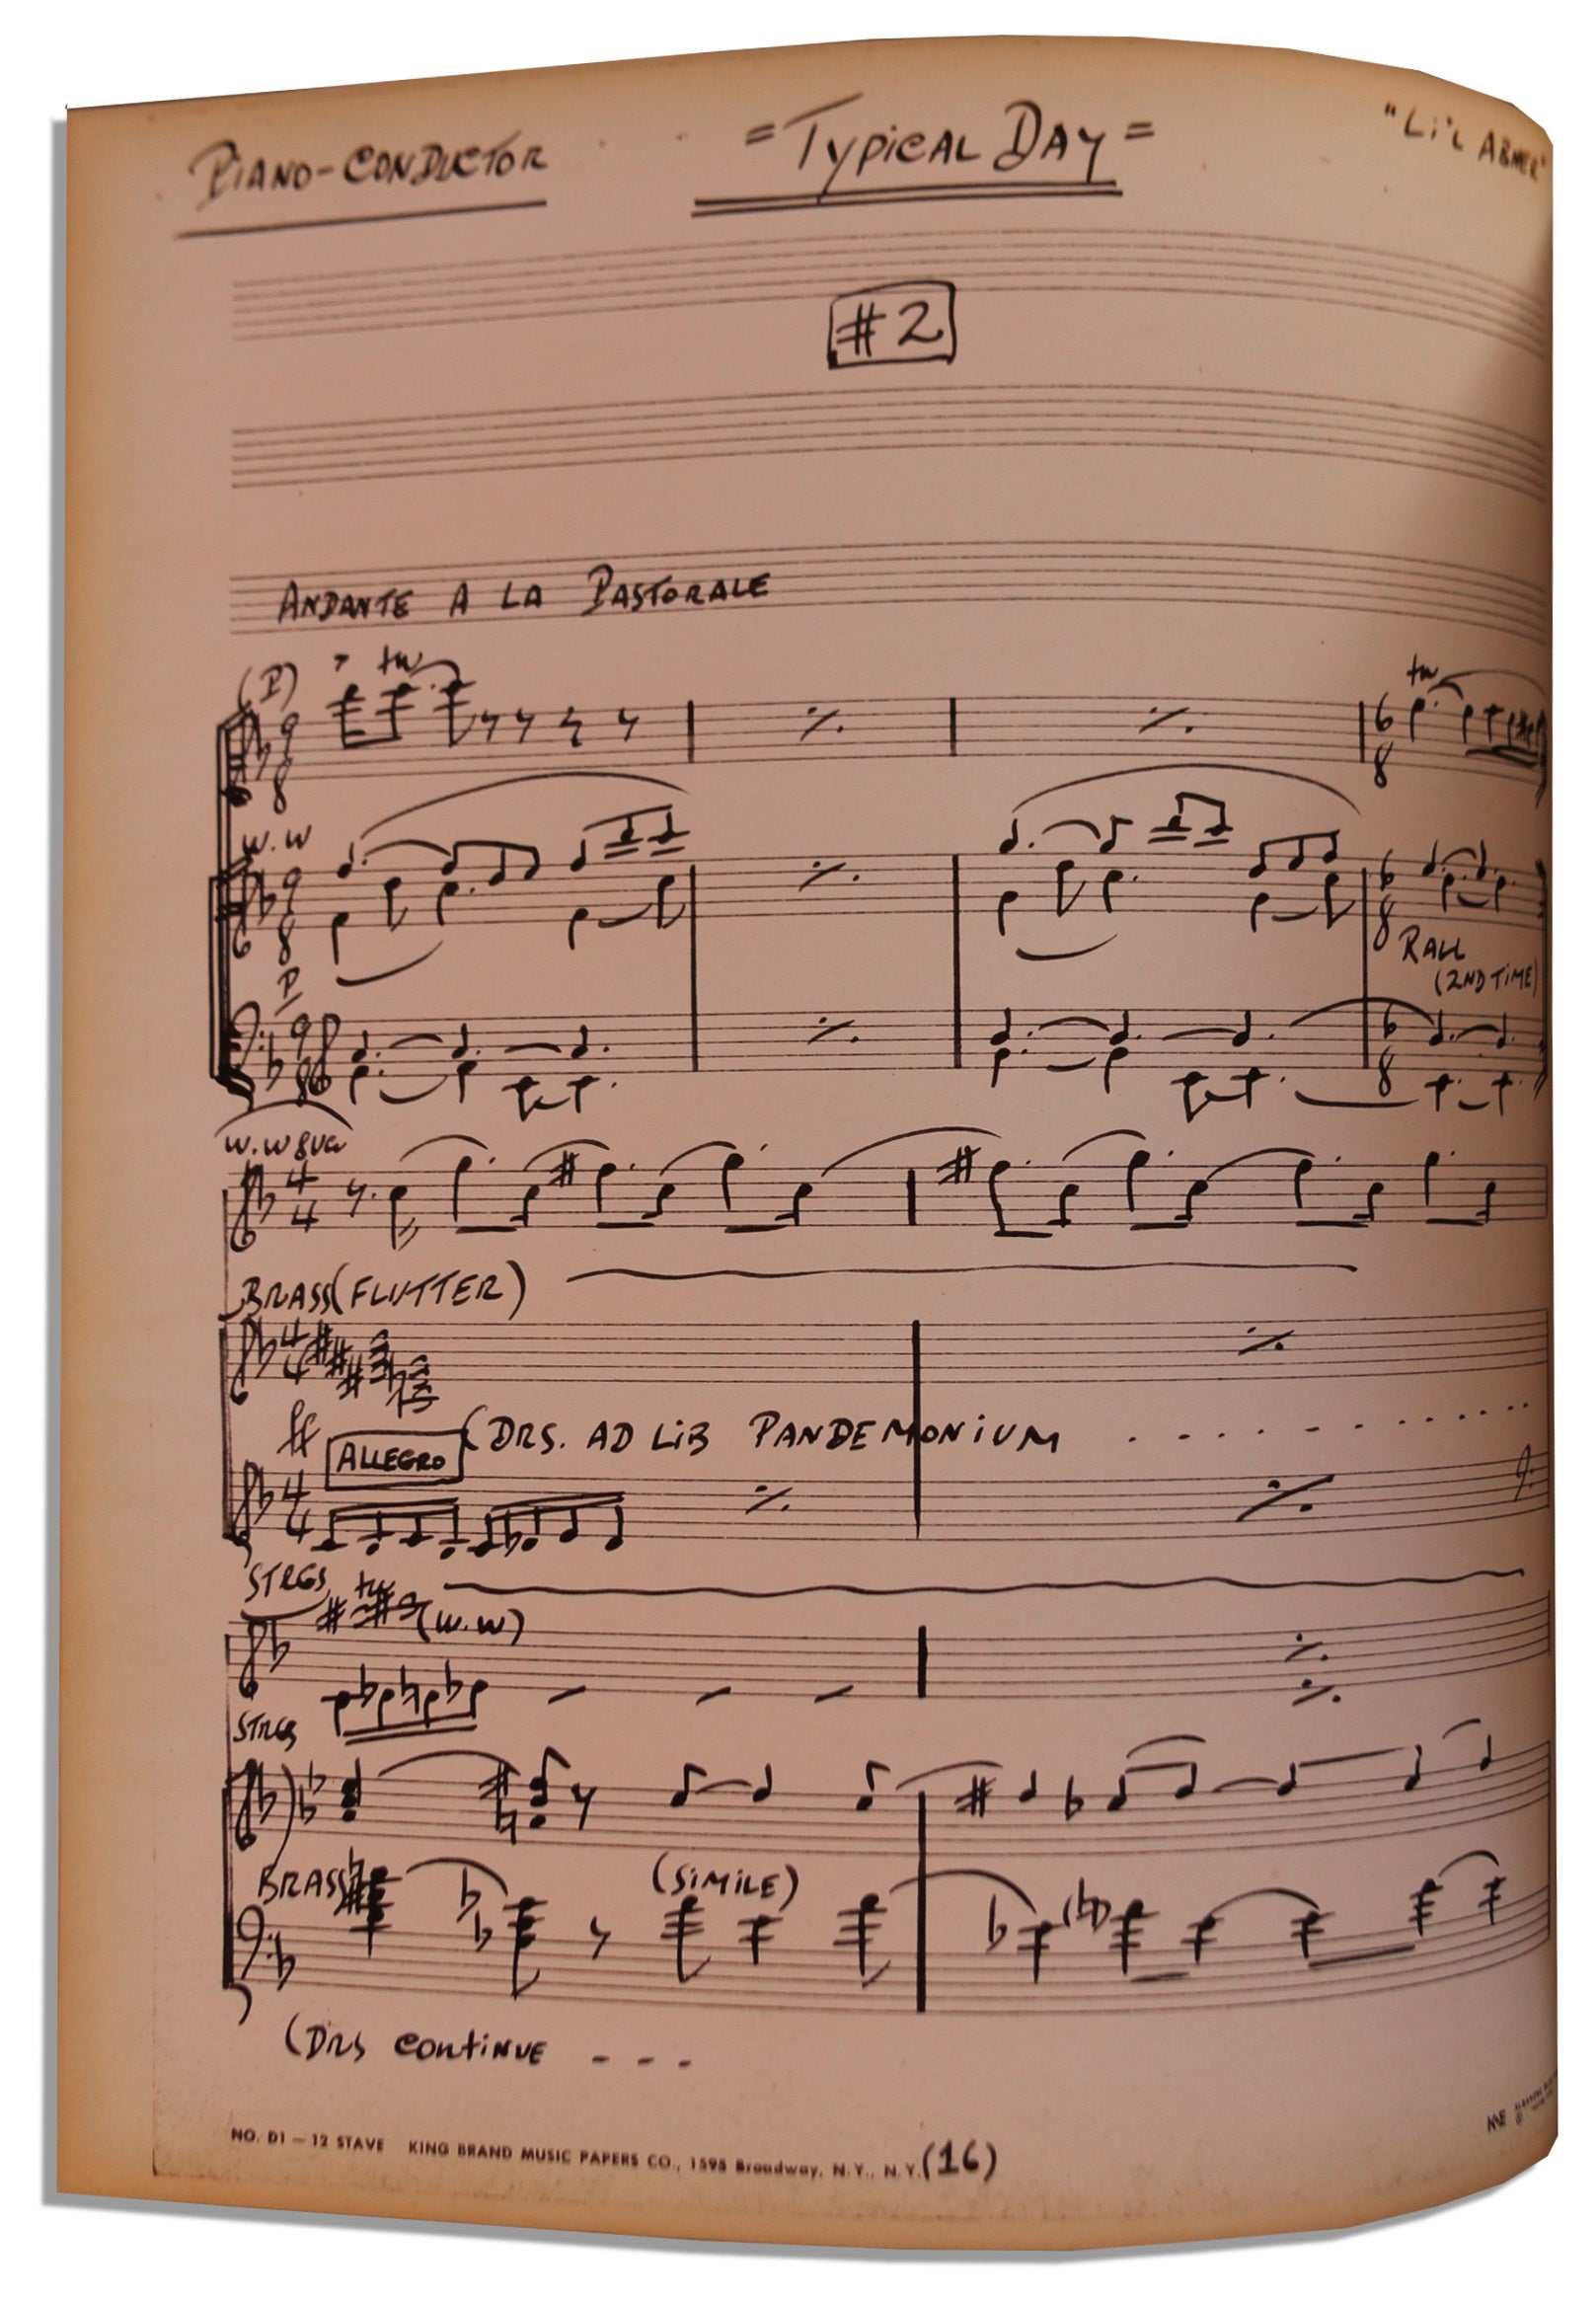 PIANO-CONDUCTOR
=TYPICAL DAY=
"LI'L ABNER"
#2
ANDANTE A LA PASTORALE
(P)
tw
tw
6
8
9
8
W.W
9
8
6
8
P
RALL
(2ND TIME)
9
8
6
8
W.W 8va
4
4
BRASS (FLUTTER)
4
4
ff
ALLEGRO
(DRS. AD LIB PANDEMONIUM . . . . . . . . .
4
4
STRGS
tw
(W.W)
STRGS
BRASS
(SIMILE)
(DRS CONTINUE - - -
NO. D1 — 12 STAVE KING BRAND MUSIC PAPERS CO., 1595 Broadway, N.Y., N.Y.
(16)